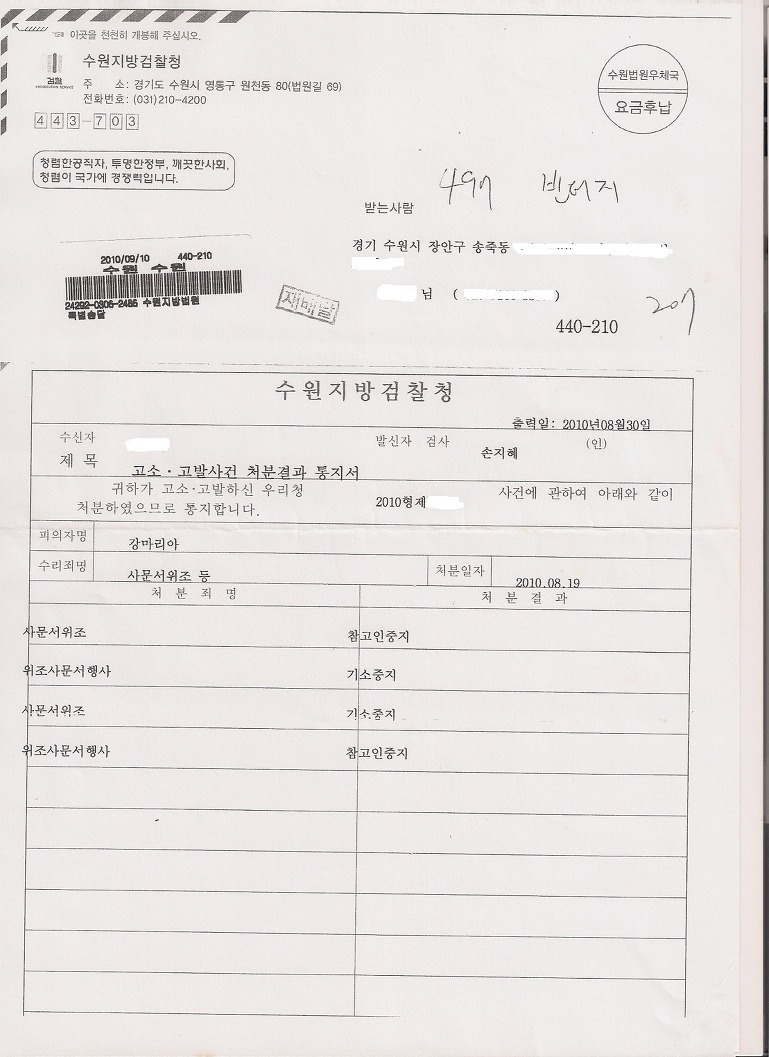 이곳을 천천히 개봉해 주십시오.
수원지방검찰청
검찰
PROSECUTION SERVICE
주 소: 경기도 수원시 영통구 원천동 80(법원길 69)
전화번호: (031)210-4200
443-703
수원법원우체국
요금후납
청렴한공직자, 투명한정부, 깨끗한사회,
청렴이 국가에 경쟁력입니다.
받는사람
경기 수원시 장안구 송죽동
님 ( )
440-210
2010/09/10 440-210
수원 수원
24292-0306-2485 수원지방법원
특별송달
재배달
수원지방검찰청
출력일: 2010년08월30일
수신자
발신자 검사 손지혜 (인)
제 목 고소·고발사건 처분결과 통지서
귀하가 고소·고발하신 우리청 2010형제 사건에 관하여 아래와 같이
처분하였으므로 통지합니다.
피의자명 강마리아
수리죄명 사문서위조 등 처분일자 2010.08.19
처 분 죄 명 처 분 결 과
사문서위조 참고인중지
위조사문서행사 기소중지
사문서위조 기소중지
위조사문서행사 참고인중지